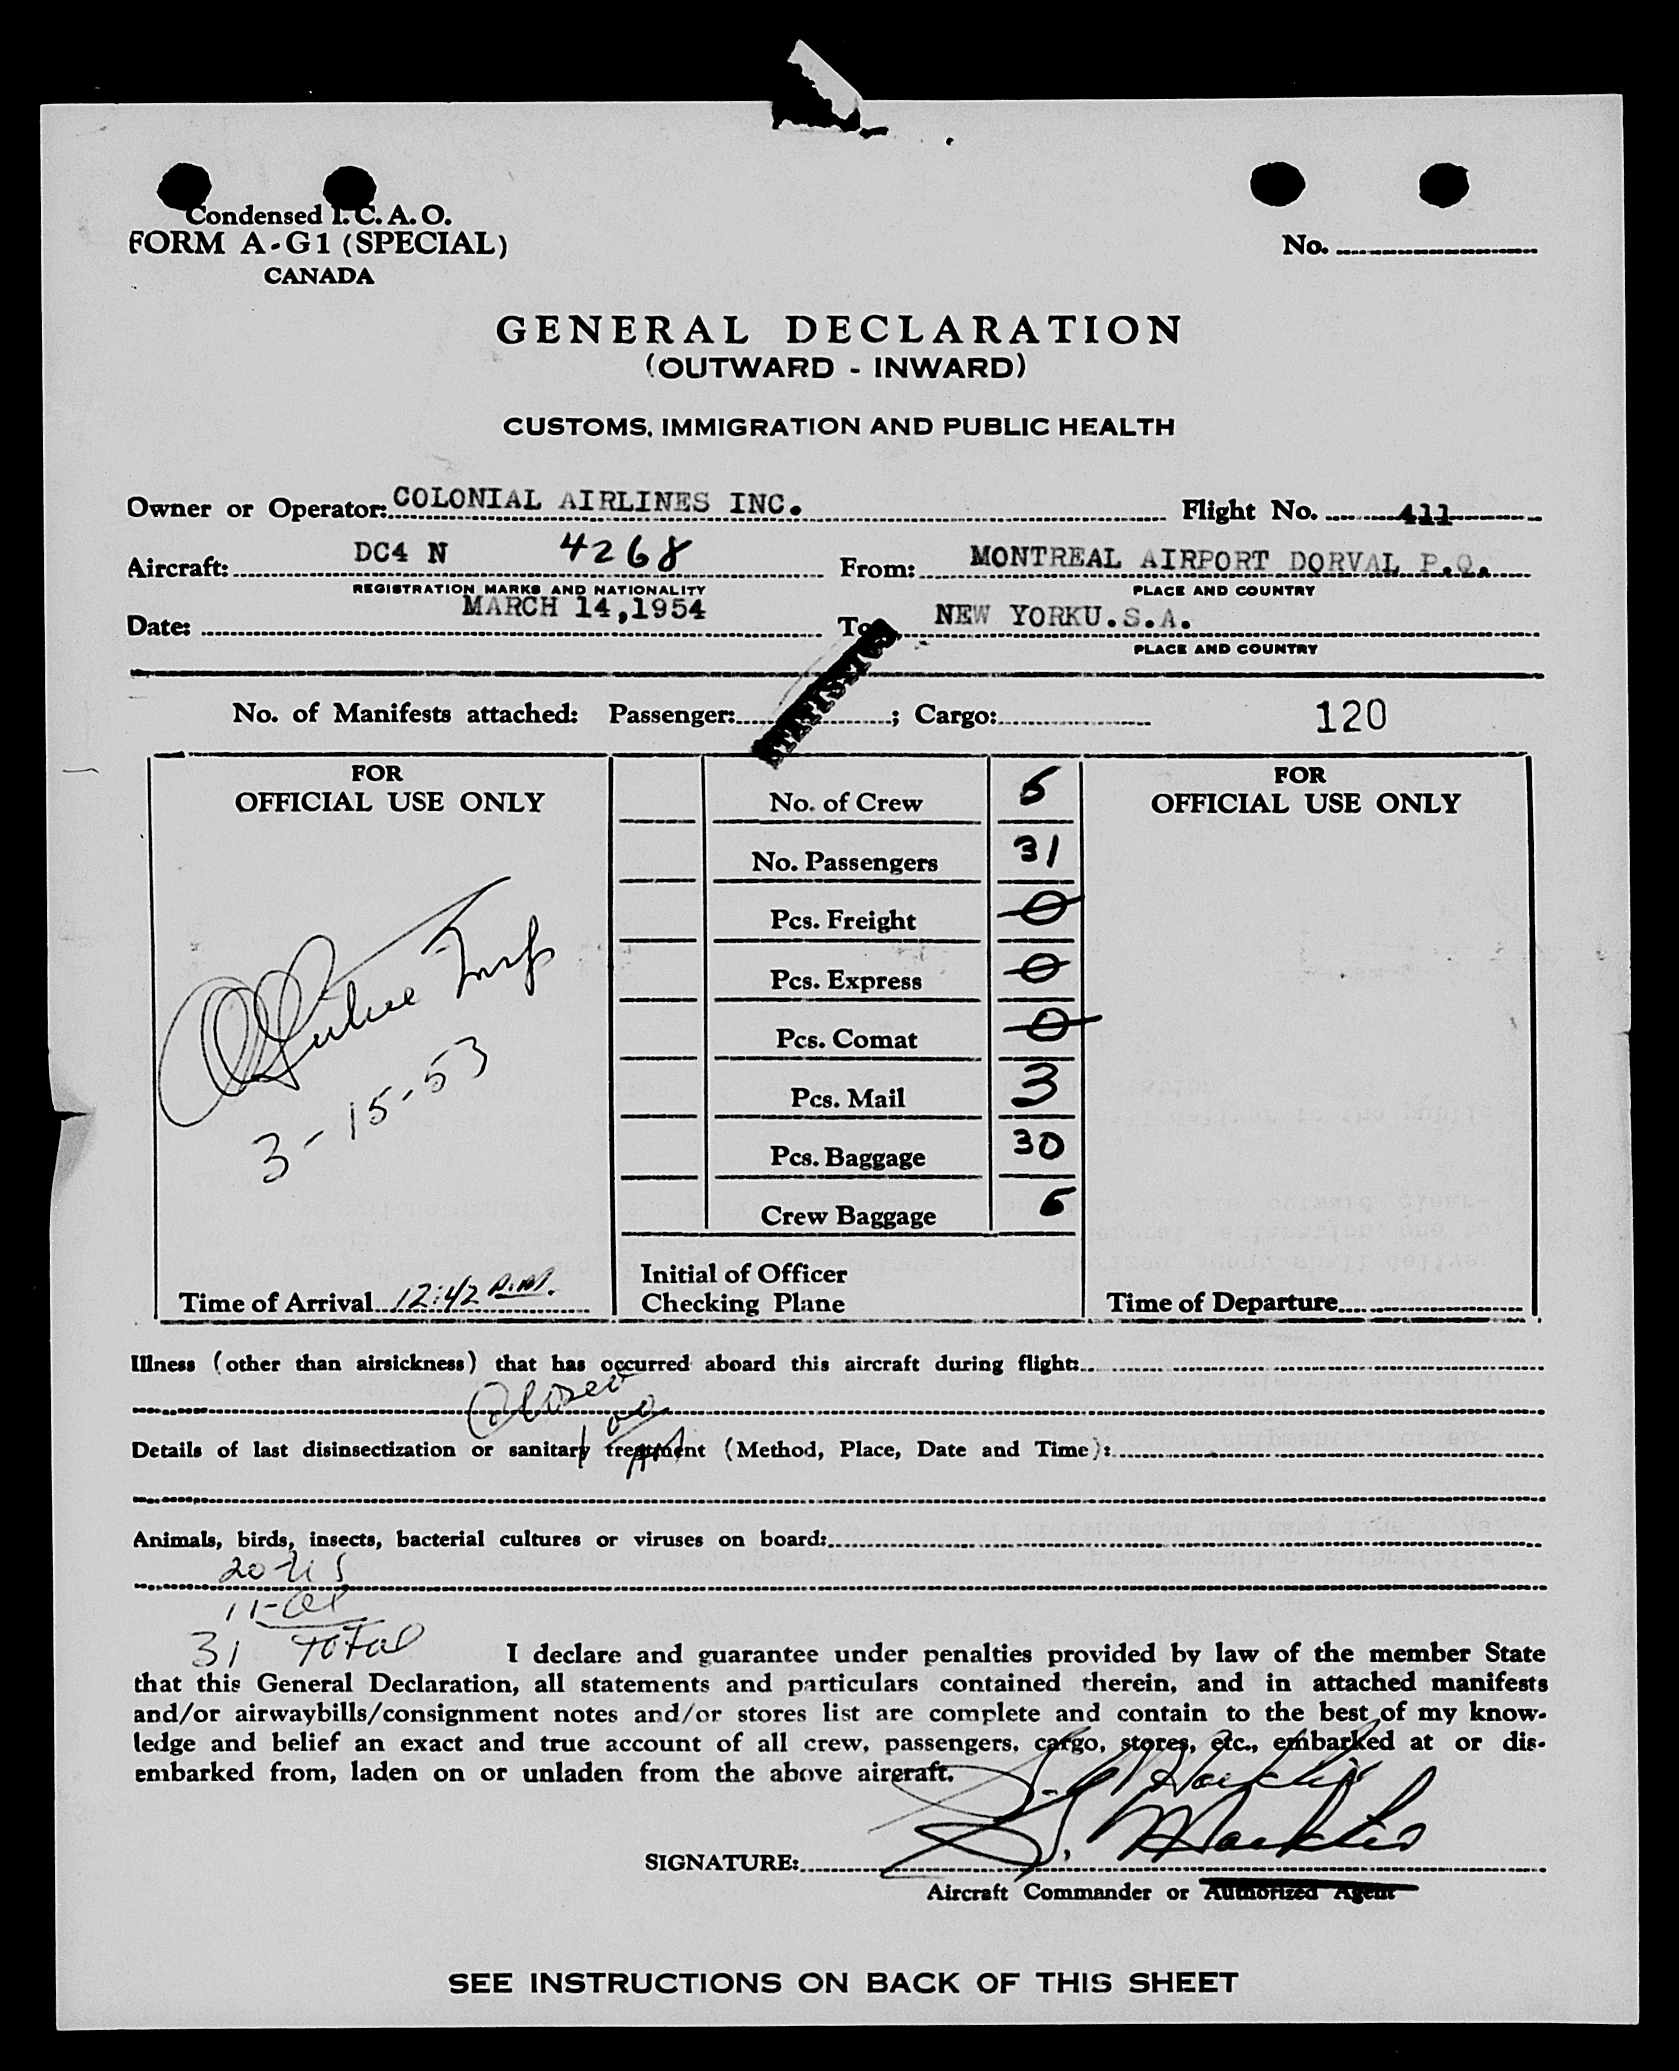 Condensed I. C. A. O.
FORM A-G1 (SPECIAL)
CANADA
No.
GENERAL DECLARATION
(OUTWARD - INWARD)
CUSTOMS, IMMIGRATION AND PUBLIC HEALTH
Owner or Operator: COLONIAL AIRLINES INC. Flight No. 411
Aircraft: DC4 N 4268 From: MONTREAL AIRPORT DORVAL P.Q.
REGISTRATION MARKS AND NATIONALITY PLACE AND COUNTRY
Date: MARCH 14,1954 To: NEW YORKU.S.A.
PLACE AND COUNTRY
No. of Manifests attached: Passenger: ; Cargo: 120
STATISTICS
FOR
OFFICIAL USE ONLY
3-15-53
Time of Arrival 12:42 P.M.
No. of Crew 5
No. Passengers 31
Pcs. Freight 0
Pcs. Express 0
Pcs. Comat 0
Pcs. Mail 3
Pcs. Baggage 30
Crew Baggage 5
Initial of Officer
Checking Plane
FOR
OFFICIAL USE ONLY
Time of Departure
Illness (other than airsickness) that has occurred aboard this aircraft during flight:
Closed
Details of last disinsectization or sanitary treatment (Method, Place, Date and Time):
Animals, birds, insects, bacterial cultures or viruses on board:
20-US
11-al
31 Total
I declare and guarantee under penalties provided by law of the member State
that this General Declaration, all statements and particulars contained therein, and in attached manifests
and/or airwaybills/consignment notes and/or stores list are complete and contain to the best of my know-
ledge and belief an exact and true account of all crew, passengers, cargo, stores, etc., embarked at or dis-
embarked from, laden on or unladen from the above aircraft.
SIGNATURE:
Aircraft Commander or Authorized Agent
SEE INSTRUCTIONS ON BACK OF THIS SHEET